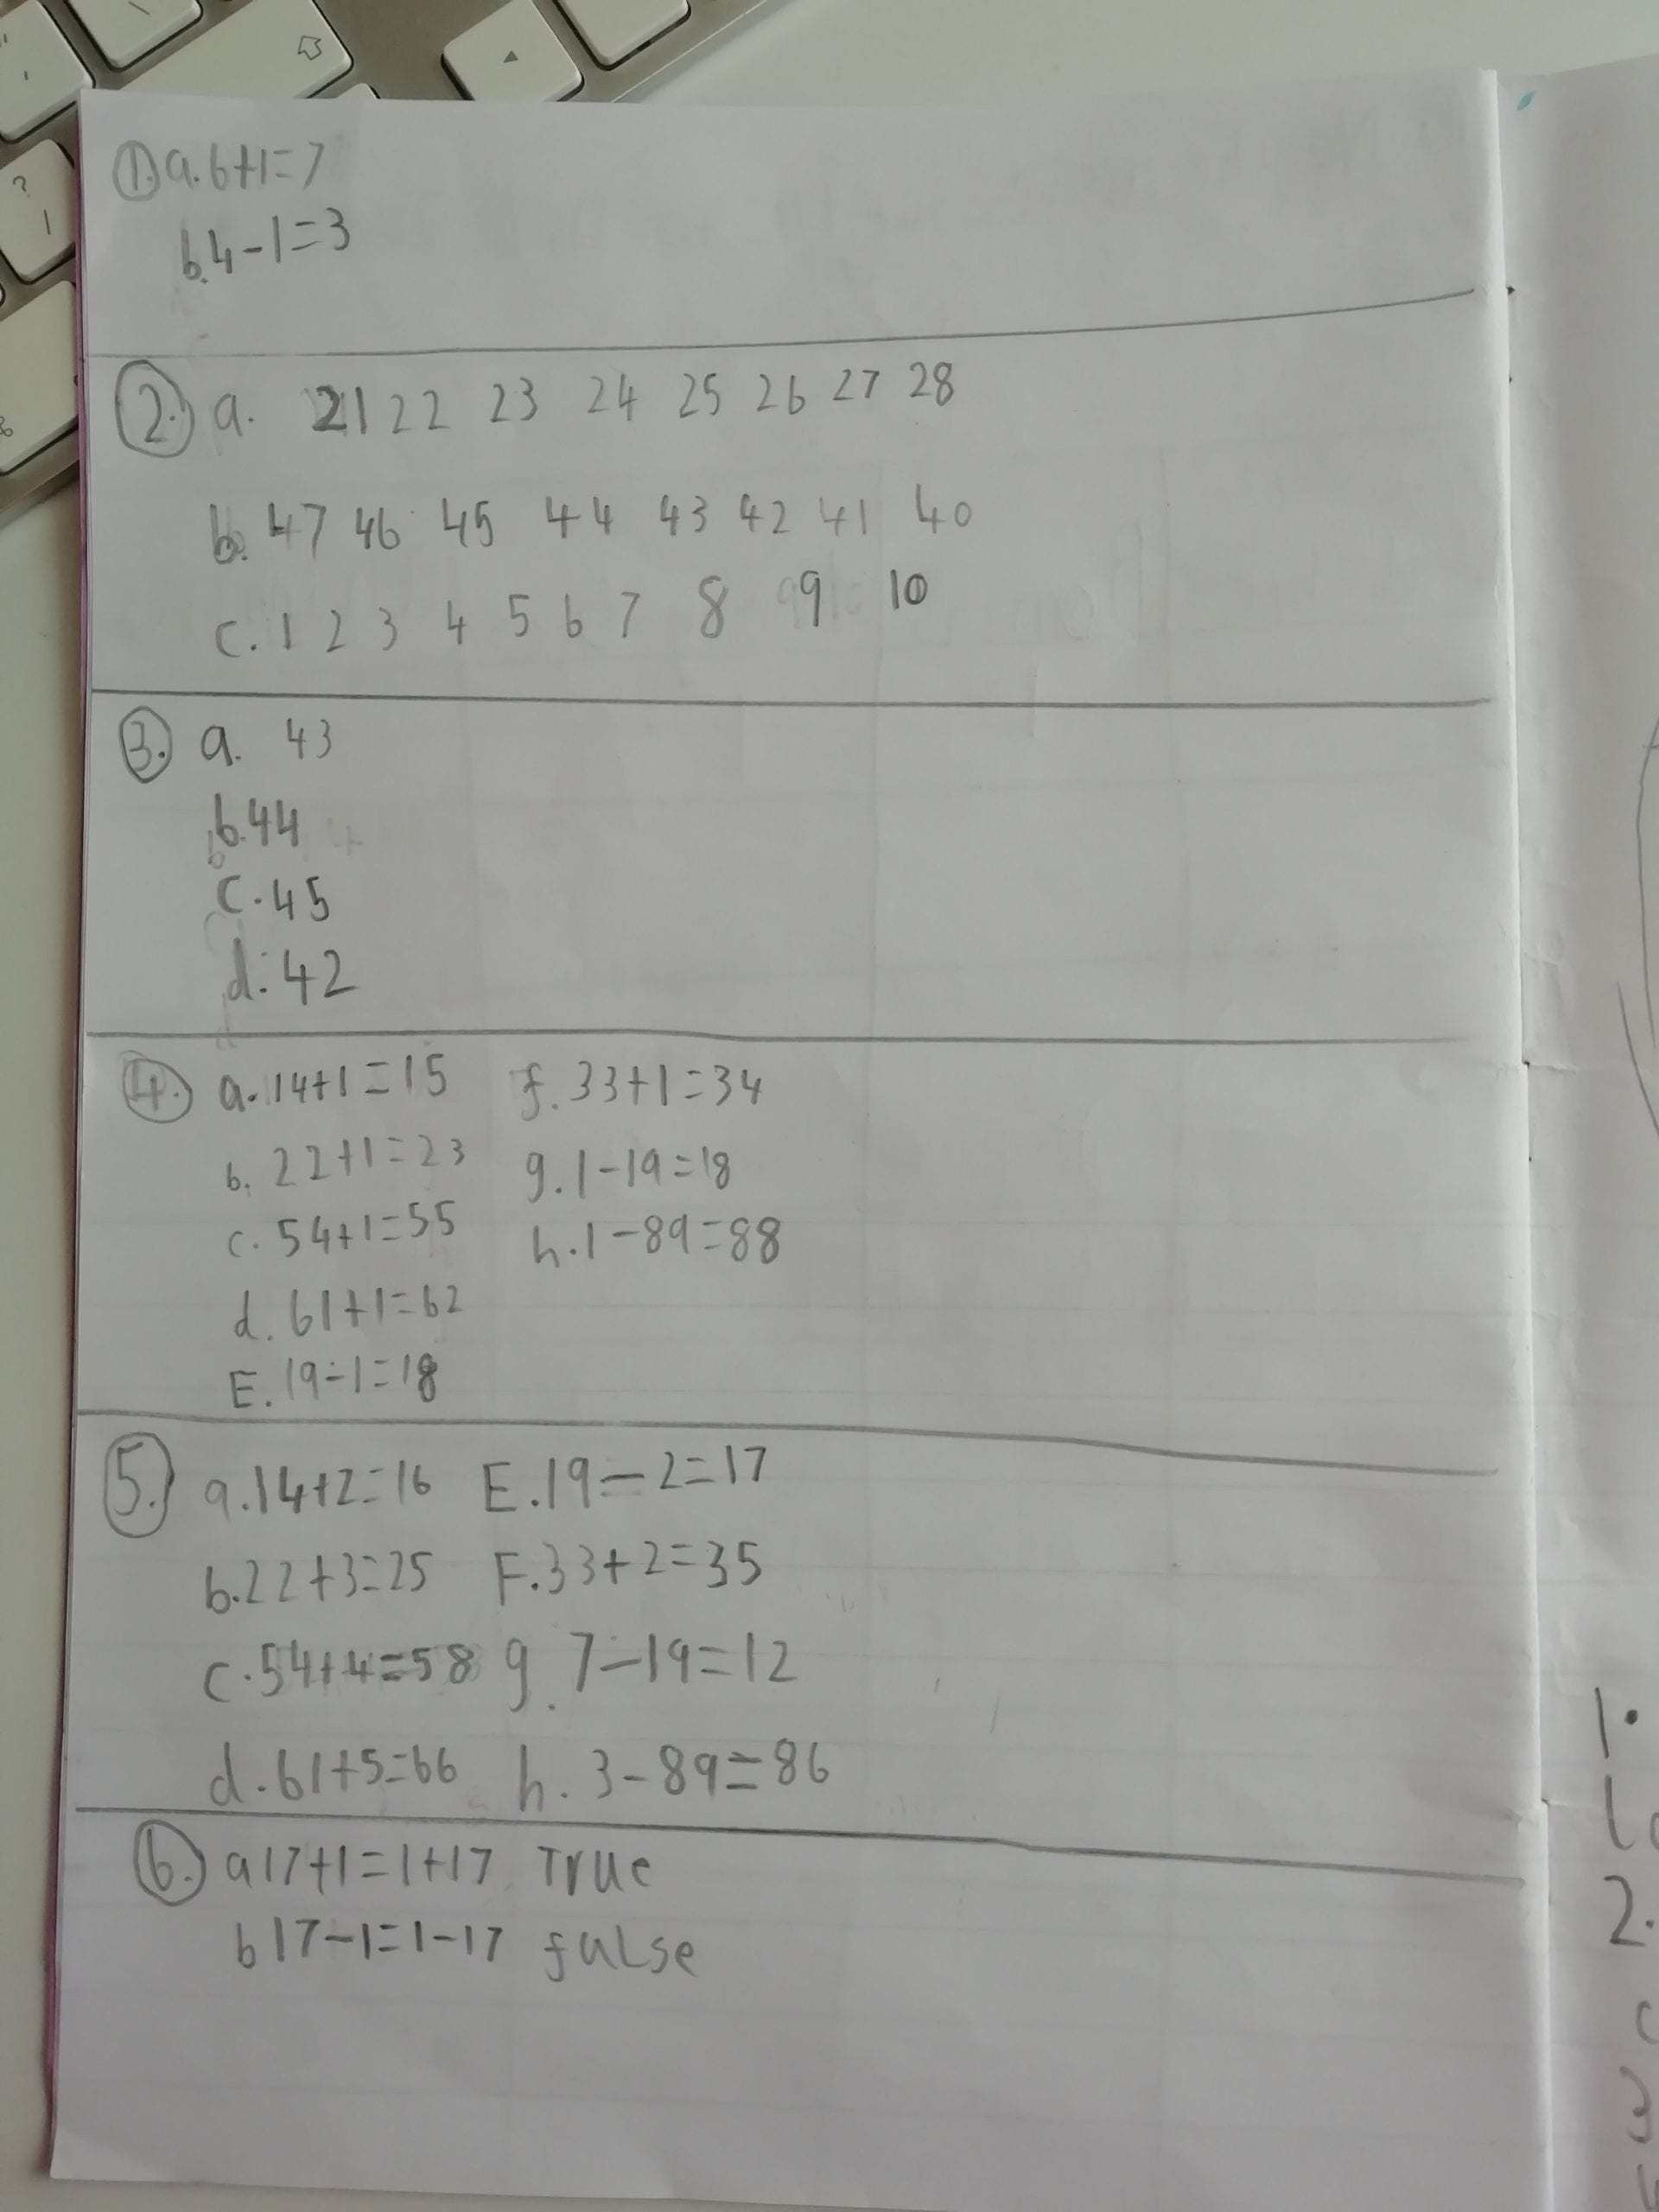 1. a. 6+1=7
b. 4-1=3
2. a. 21 22 23 24 25 26 27 28
b. 47 46 45 44 43 42 41 40
c. 1 2 3 4 5 6 7 8 9 10
3. a. 43
b. 44
c. 45
d. 42
4. a. 14+1=15 f. 33+1=34
b. 22+1=23 g. 1-19=18
c. 54+1=55 h. 1-89=88
d. 61+1=62
E. 19-1=18
5. a. 14+2=16 E. 19-2=17
b. 22+3=25 F. 33+2=35
c. 54+4=58 g. 7-19=12
d. 61+5=66 h. 3-89=86
6. a 17+1=1+17 True
b 17-1=1-17 faLse
1.
2.